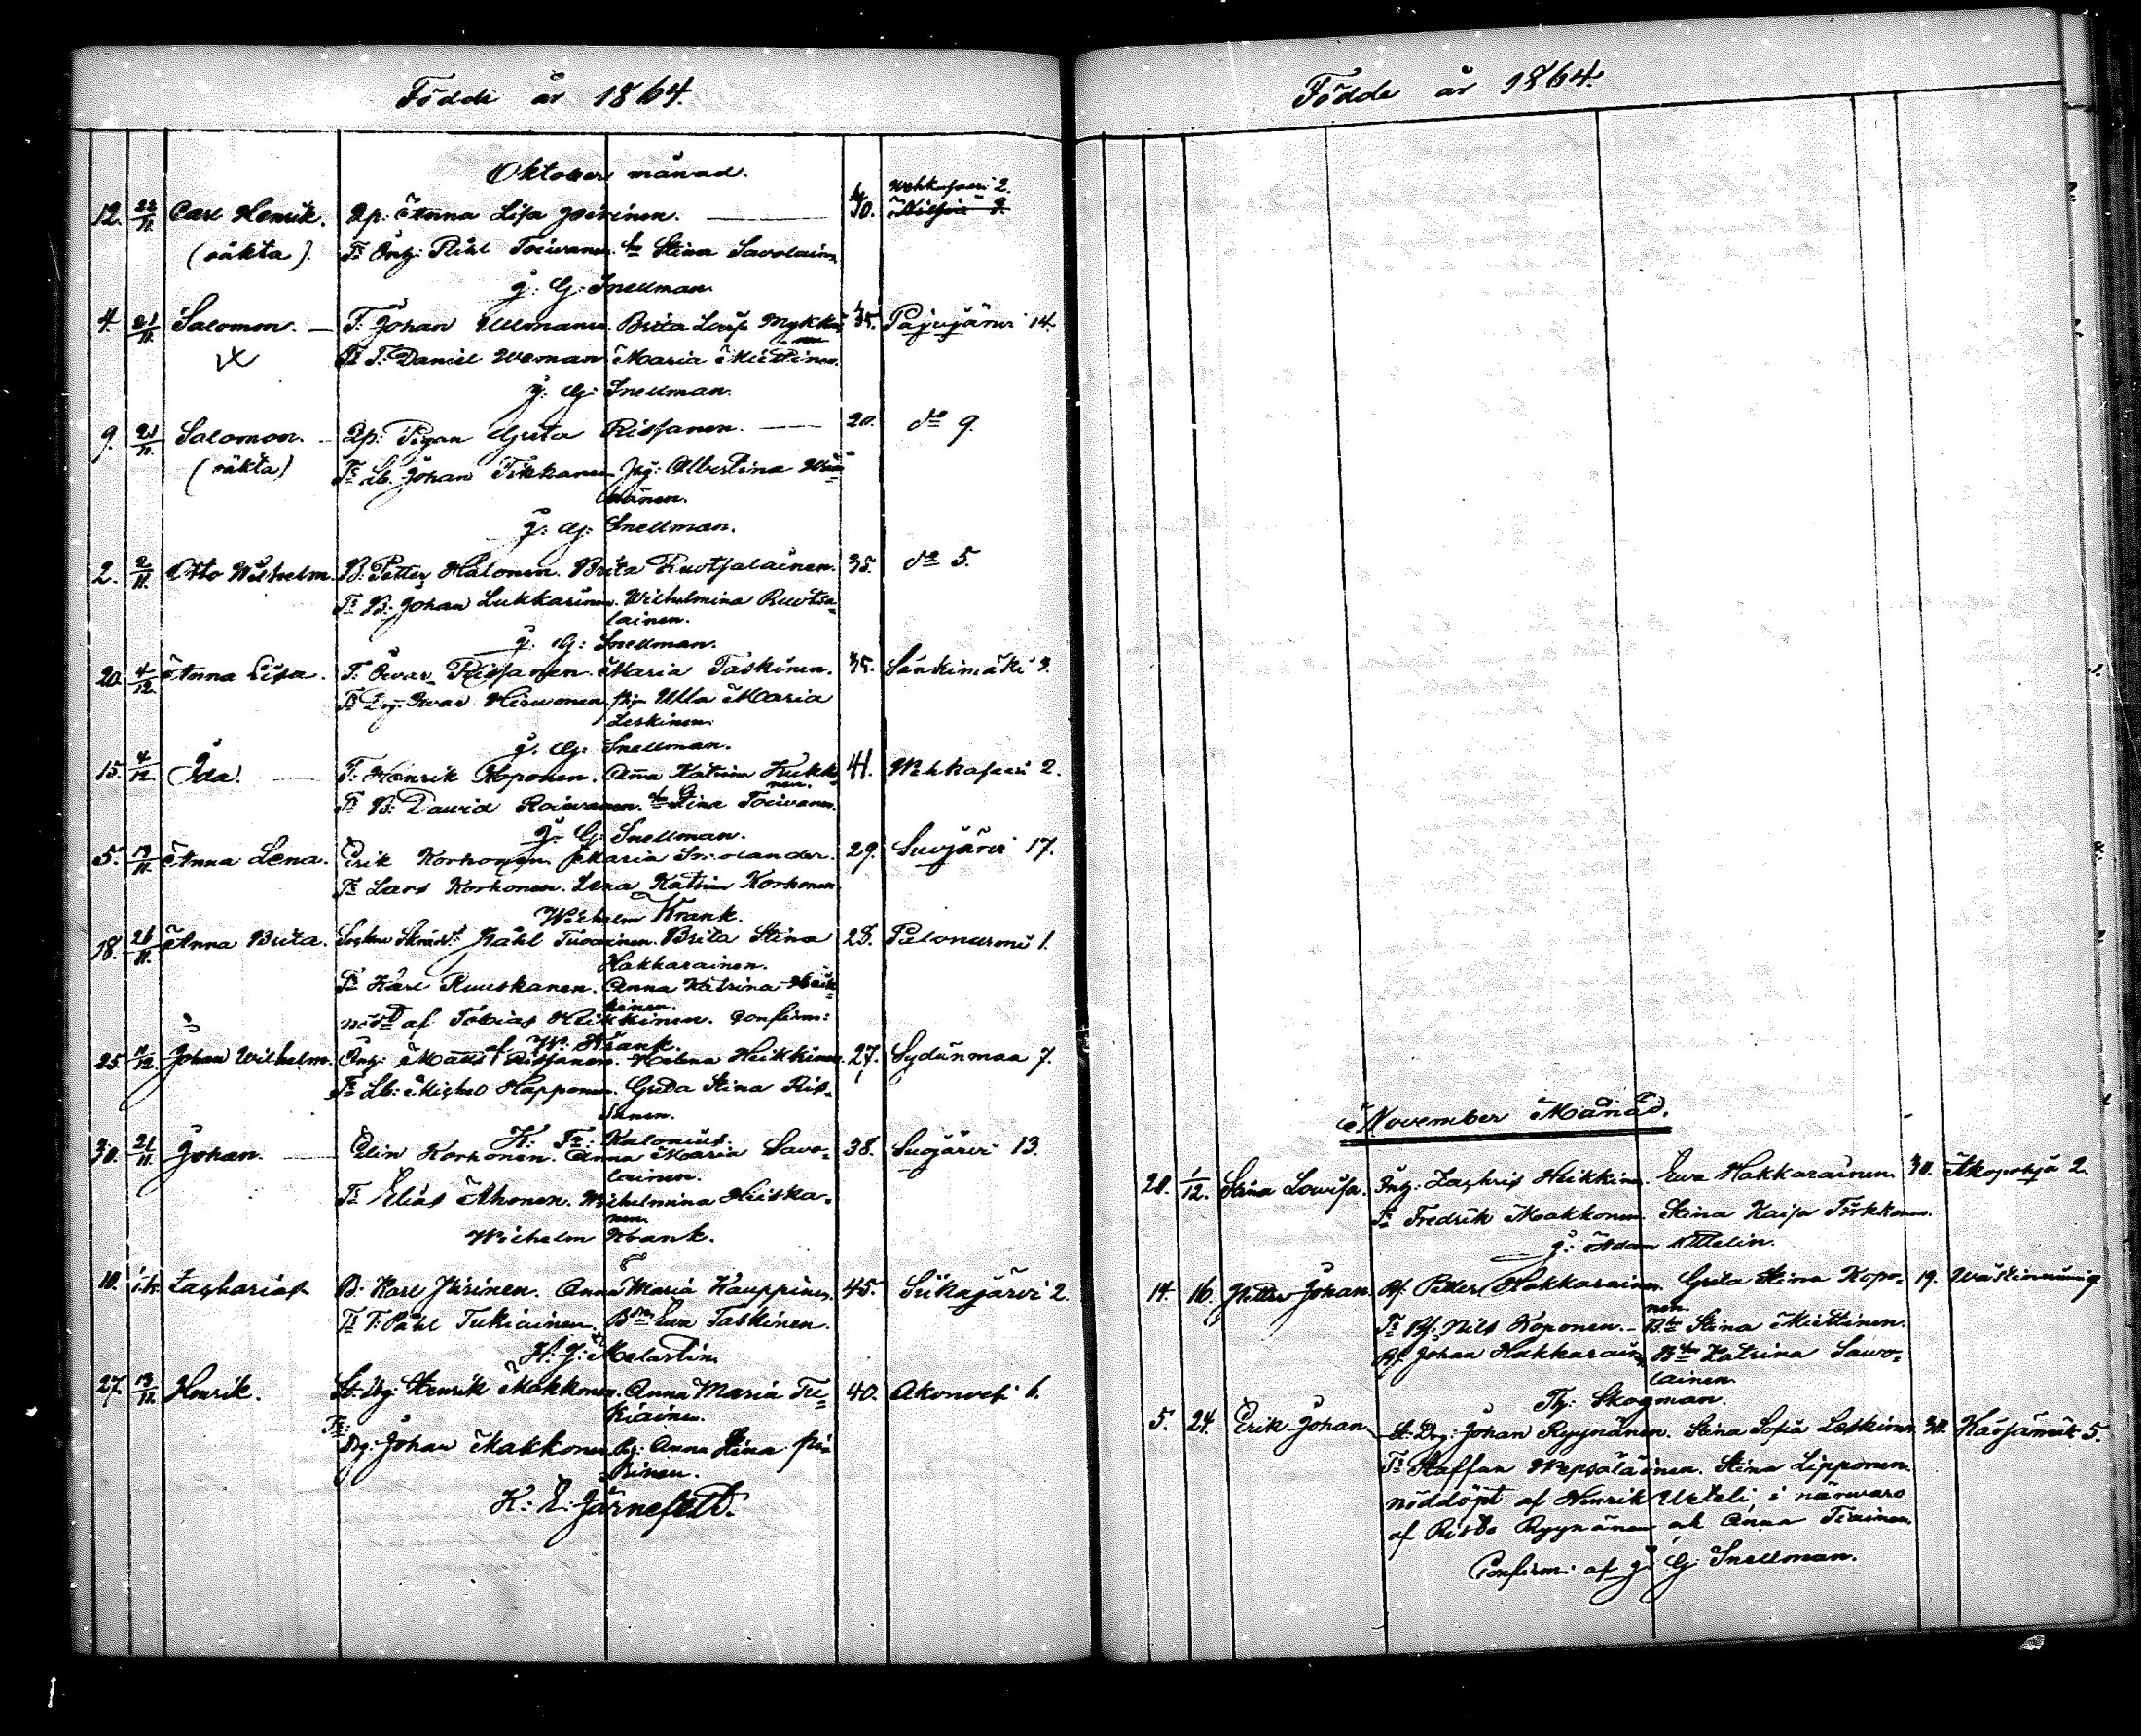 Födde år 1864.
Oktober månad.
12. 22/11. Carl Henrik. Qp: Anna Lisa 30. Wehkasaari 2.
(oäkta). Ts Inh: Påhl Toivanen. Stina Savolainen
J: G: Snellman.
4. 21/11. Salomon. T: Johan Ullmanen. Brita Lovisa Mykkä= 35. Pajujärvi 14.
nen
Ts T: Daniel Weman Maria Miettinen.
J: G: Snellman.
9. 21/11. Salomon. Qp: Pigan Greta Rissanen. 20. do 9.
(oäkta) Ts Lb. Johan Tikkanen Pig: Albertina
J: G: Snellman.
2. 2/11. Otto Wilhelm. B: Petter Halonen. Brita Ruotsalainen. 35. do 5.
Ts B: Johan Lukkarinen. Wilhelmina Ruotsa=
lainen.
J: G: Snellman.
20. 4/12. Anna Lisa. T: Rissanen. Maria Taskinen. 35. Sänkimäki 3.
Ts Drg: Ivar Hirvonen. pig Ulla Maria
Leskinen.
J: G: Snellman.
15. 4/12. Ida. T: Henrik Koponen. Anna Katrina 41. Wehkasaari 2.
nen.
Ts B: David Roivanen. Stina Toivanen.
J: G: Snellman.
5. 13/11. Anna Lena. Erik Korhonen Maria 29. Suojärvi 17.
Ts Lars Korhonen. Lena Katrina Korhonen
Wilhelm Krank.
18. 21/11. Anna Brita. Påhl Brita Stina 28. Palonurmi 1.
Hakkarainen.
Ts Karl Ruuskanen. Anna Katrina Heik=
kinen.
nöddöpt af Tobias Heikkinen. Confirm:
af W: Krank.
25. 11/12. Johan Wilhelm. Inh: Matts Rissanen. Helena Heikkinen. 27. Sydänmaa 7.
Ts Lb: Michel Happonen. Greta Stina Ris=
sanen.
K: Fr: Kalonius.
30. 21/11. Johan. Elin Korhonen. Anna Maria Savo= 38. Suojärvi 13.
lainen.
Ts Elias Ahonen. Wilhelmina Heiska=
nen.
Wilhelm Krank.
10. Zacharias B: Karl Jürinen. Anna Maria Kauppinen. 45. Siikajärvi 2.
Ts T: Påhl Tukiainen. Ewa Taskinen.
H: J: Malastin
27. 13/11. Henrik. St: drg: Henrik Makkonen. Anna Maria Tu= 40. Akonvesi 6.
kiainen.
Ts
Drg: Johan Makkonen Pig: Anna Stina
K: E: Järnefelt.
Födde år 1864.
November Månad.
20. 1/12. Stina Lovisa. Inh: Zachris Heikkinen. Ewa Hakkarainen. 30. Akopohja 2.
Ts Fredrik Makkonen. Stina Kaisa Tirkkonen.
J: Adam Melin.
14. 16. Petter Johan. Bf. Petter Hakkarainen. Greta Stina Kopo= 19. Wästinniemi 9
nen.
Ts Bf. Nils Koponen. Stina Miettinen.
Bf. Johan Hakkarainen Katrina Savo=
lainen.
Th: Skogman.
5. 24. Erik Johan St: Drg: Johan Ryynänen. Stina Sofia Leskinen. 30. Karjamäki 5.
Ts Staffan Wepsäläinen. Stina Lipponen.
nöddöpt af Henrik i närwaro
af Risto Ryynänen och Anna Tiainen.
Confirm: af J: G: Snellman.